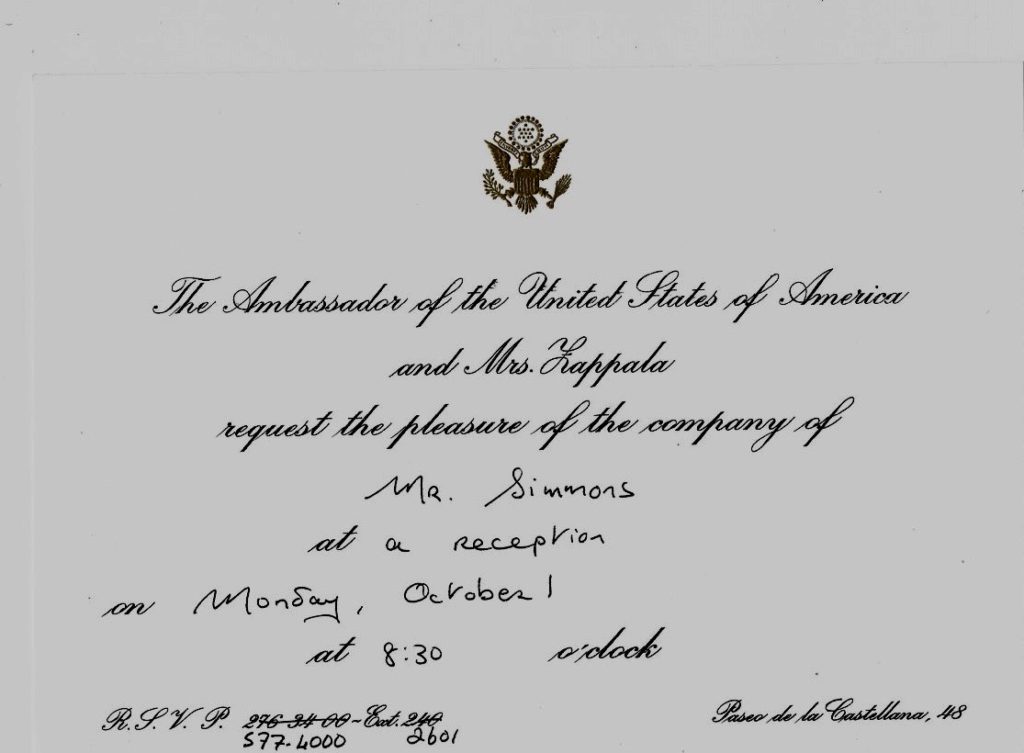 The Ambassador of the United States of America
and Mrs. Zappala
request the pleasure of the company of
Mr. Simmons
at a reception
on Monday, October 1
at 8:30 o'clock
R.S.V.P. 276-34 00 - Ext. 240
Paseo de la Castellana, 48
577-4000 2601